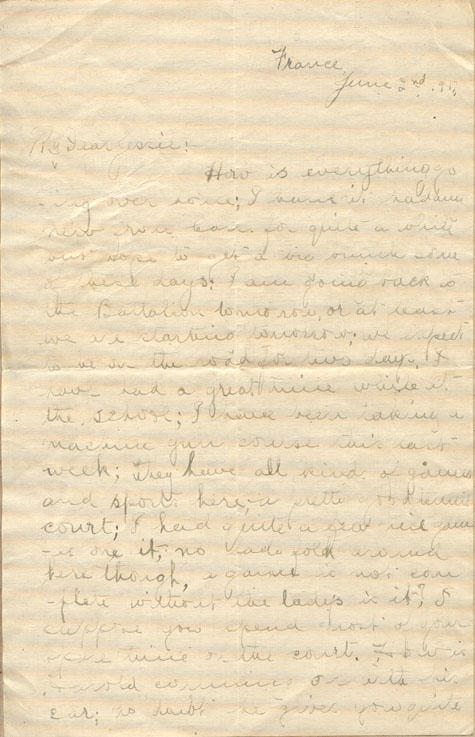 France
June 2nd
My Dear Jessie:
How is everything go
-ing over home; I have n't had any
news from  for quite a while
but hope to get a big bunch some
of these days; I am going back to
the Battalion tomorrow, or at least
we are starting tomorrow; we expect
to be on the road for two days. I
have had a great time while at
the school; I have been taking a
machine gun course this last
week; they have all kind of games
and sports here, a pretty good tennis
court; I had quite a few nice games
on it; no  around
here though, a game is not com
-plete without the ladys in it; I
suppose you spend most of your
time on the court. How is
 old  with his
car; no doubt he gives you quite